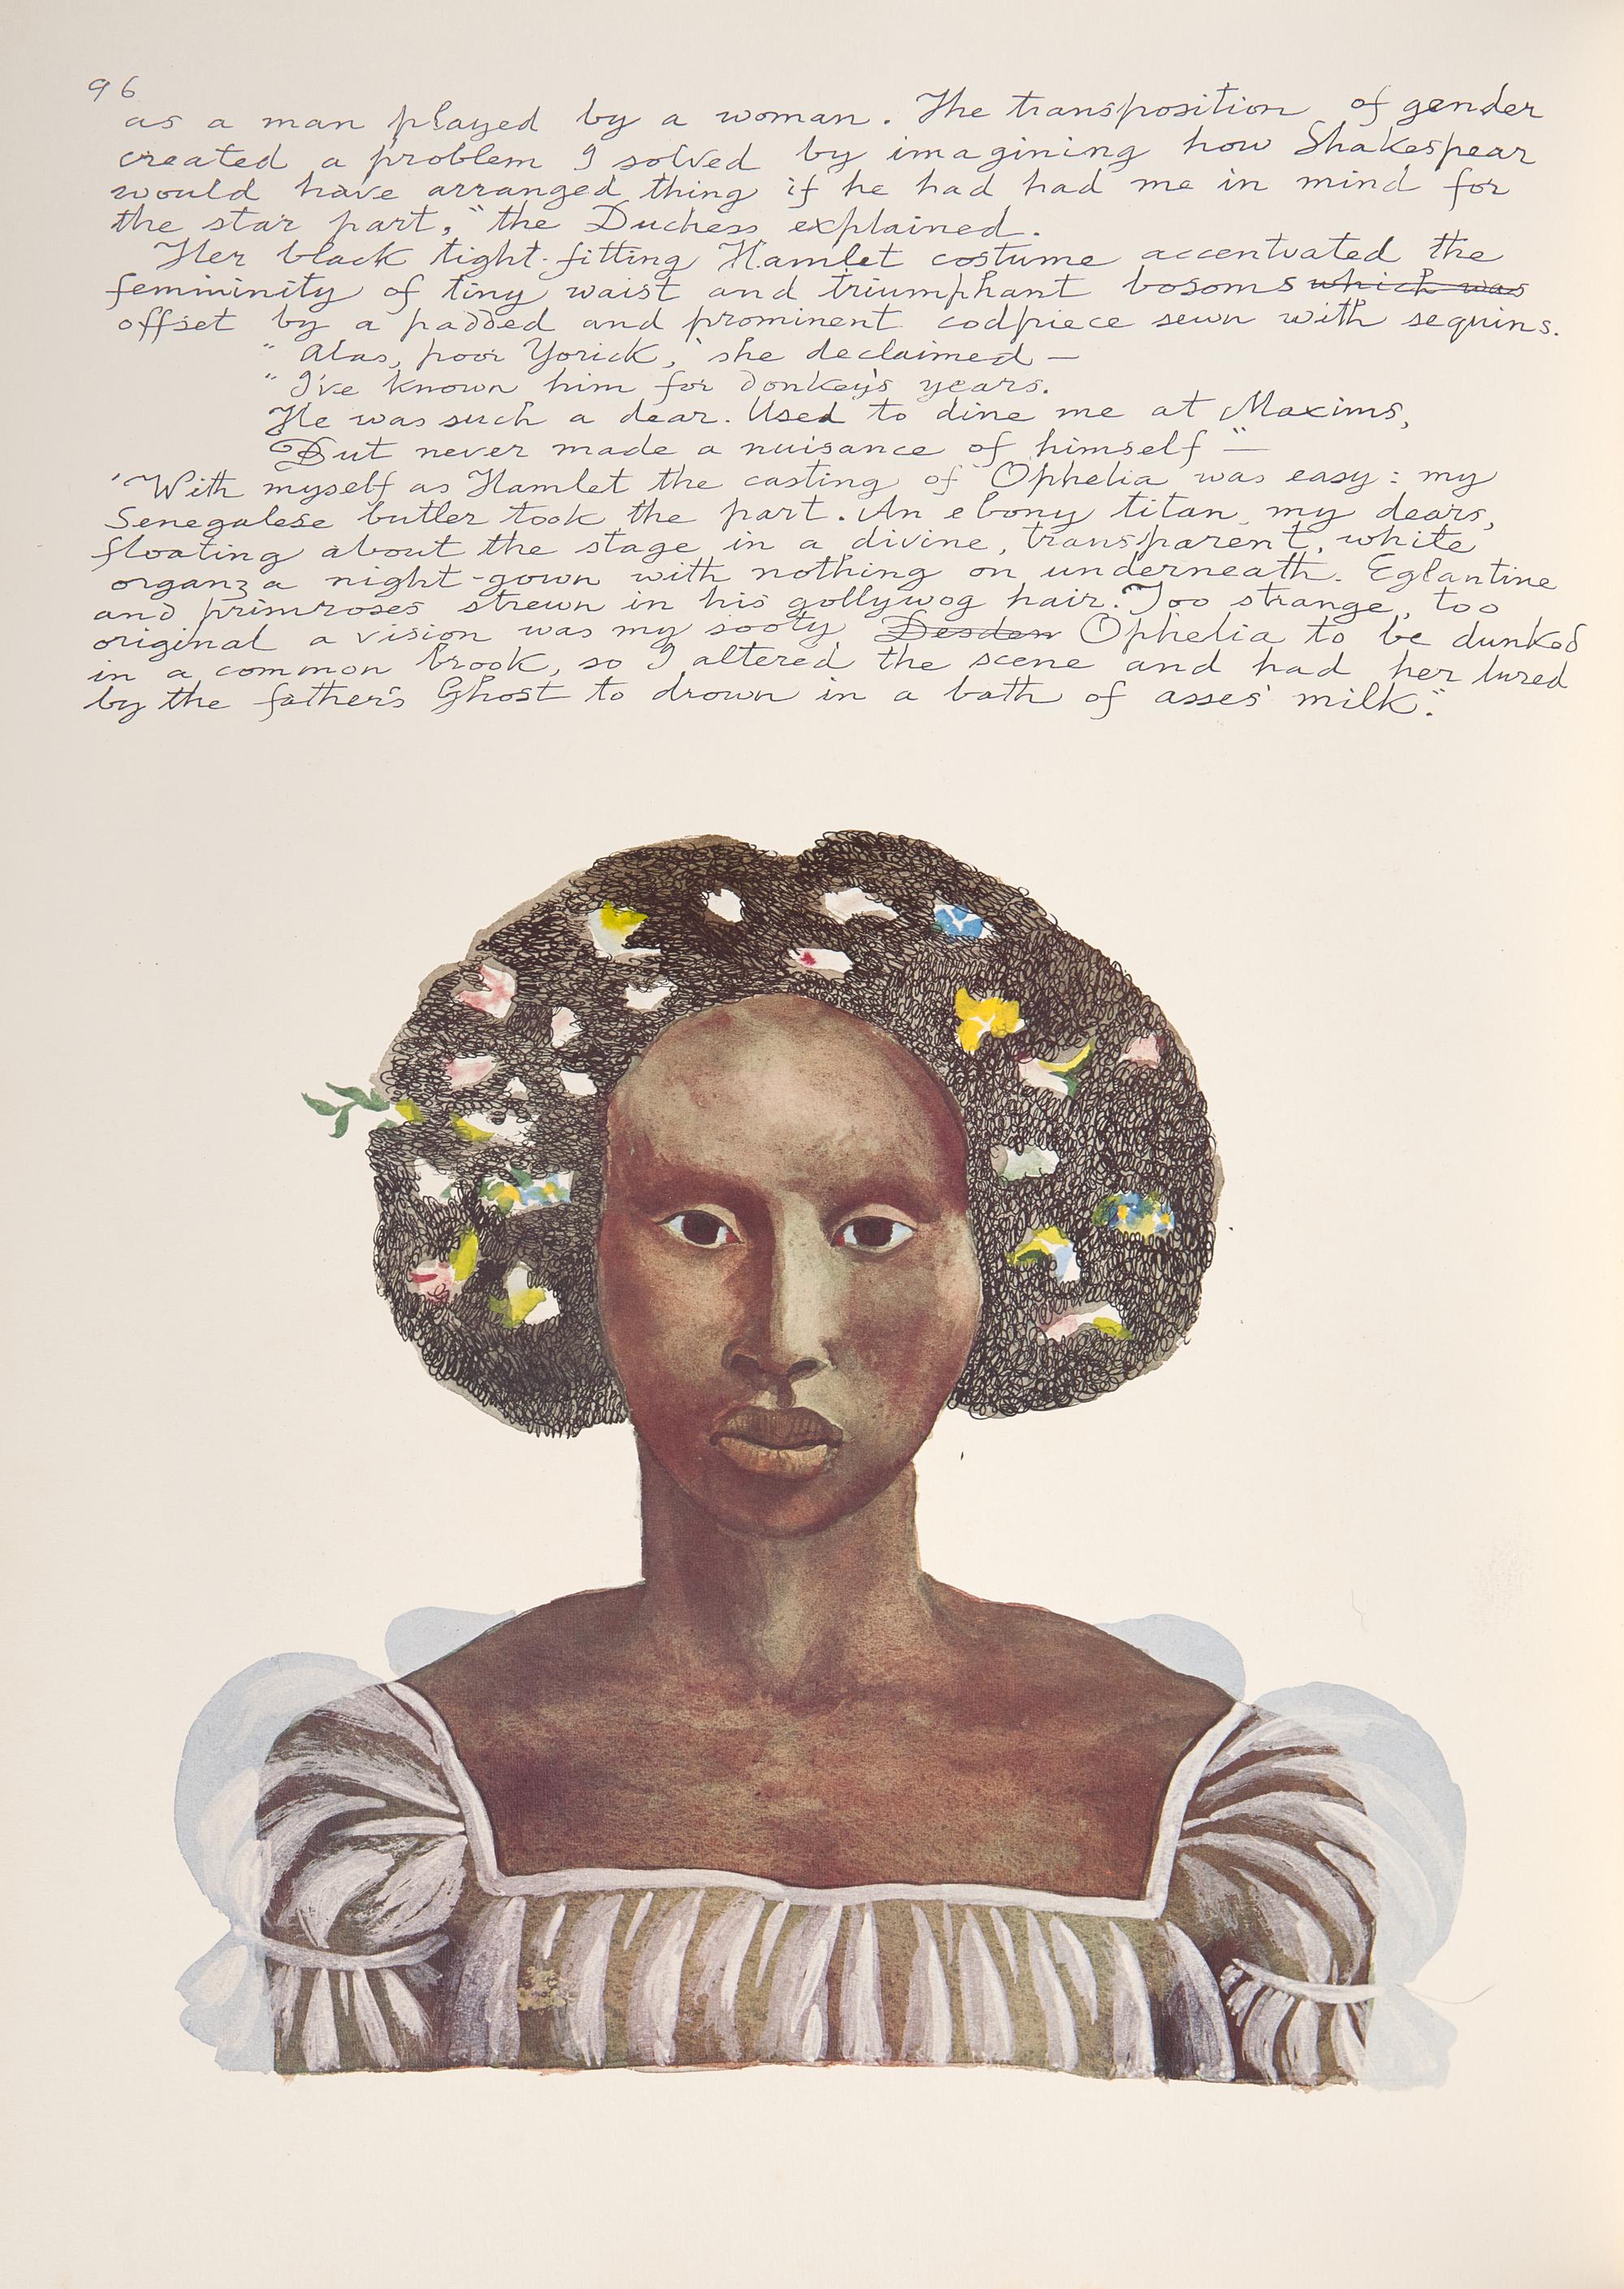 96
as a man played by a woman. The transposition of gender
created a problem I solved by imagining how Shakespear
would have arranged thing if he had had me in mind for
the star part," the Duchess explained.
Her black tight-fitting Hamlet costume accentuated the
femininity of tiny waist and triumphant bosoms which was
offset by a padded and prominent codpiece sewn with sequins.
"Alas, poor Yorick," she declaimed —
"I've known him for donkey's years.
He was such a dear. Used to dine me at Maxims,
But never made a nuisance of himself" —
'With myself as Hamlet the casting of Ophelia was easy: my
Senegalese butler took the part. An ebony titan, my dears,
floating about the stage in a divine, transparent, white
organza night-gown with nothing on underneath. Eglantine
and primroses strewn in his gollywog hair. Too strange, too
original a vision was my sooty Desdem Ophelia to be dunked
in a common brook, so I altered the scene and had her lured
by the father's Ghost to drown in a bath of asses' milk."